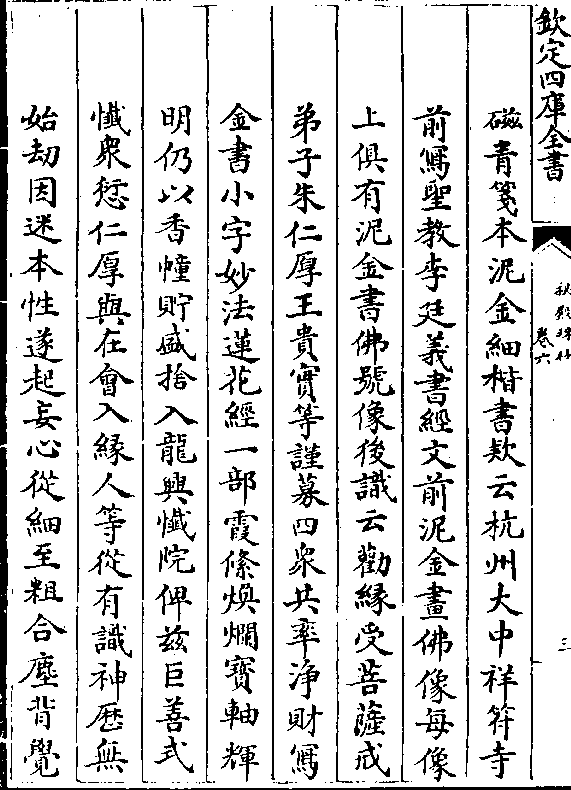 欽定四庫全書
秘殿珠林
卷六
三
磁青箋本泥金細楷書欵云杭州大中祥符寺
前寫聖教李廷義書經文前泥金畫佛像每像
上俱有泥金書佛號像後識云勸緣受菩薩戒
弟子朱仁厚王貴實等謹募四衆共率淨財寫
金書小字妙法蓮花經一部霞絛煥爛寳軸輝
明仍以香幢貯盛捨入龍興懺院俾兹巨善式
懺衆愆仁厚與在會入緣人等從有識神歴無
始劫因迷本性遂起妄心從細至粗合塵背覺